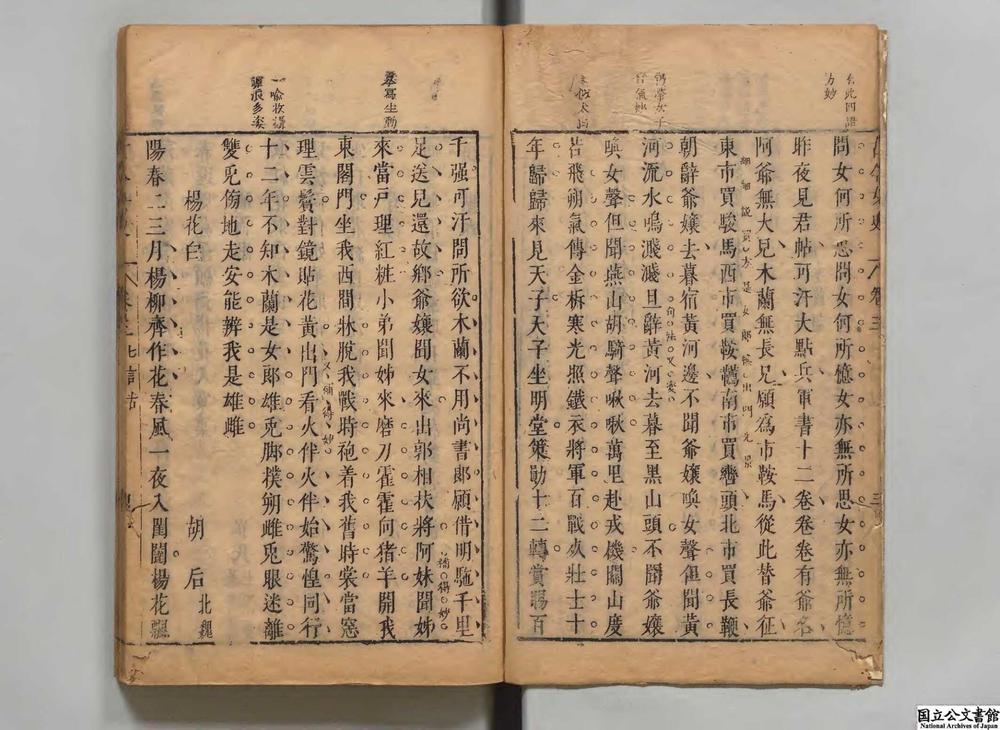 問女何所思問女何所憶女亦無所思女亦無所憶
昨夜見君帖可汗大點兵軍書十二卷卷卷有爺名
阿爺無大兒木蘭無長兄願爲市鞍馬從此替爺征
東市買駿馬西市買鞍韉南市買轡頭北市買長鞭
朝辭爺孃去暮宿黃河邊不聞爺孃喚女聲但聞黃
河流水鳴濺濺旦辭黃河去暮至黑山頭不聞爺孃
句法又變
喚女聲但聞燕山胡騎聲啾啾萬里赴戎機關山度
若飛朔氣傳金柝寒光照鐵衣將軍百戰死壯士十
年歸歸來見天子天子坐明堂策勳十二轉賞賜百
千强可汗問所欲木蘭不用尚書郎願借明駞千里
足送兒還故鄉爺孃聞女來出郭相扶將阿妹聞姊
摹寫生動
來當戶理紅粧小弟聞姊來磨刀霍霍向猪羊開我
東閣門坐我西間牀脫我戰時袍着我舊時裳當窓
理雲鬢對鏡貼花黃出門看火伴火伴始驚惶同行
又補得妙
十二年不知木蘭是女郎雄兎脚撲朔雌兎眼迷離
一喻收得
雙兎傍地走安能辨我是雄雌
楊花白 胡后 北魏
陽春二三月楊柳齊作花春風一夜入閨闥楊花飄
国立公文書館
National Archives of Japan